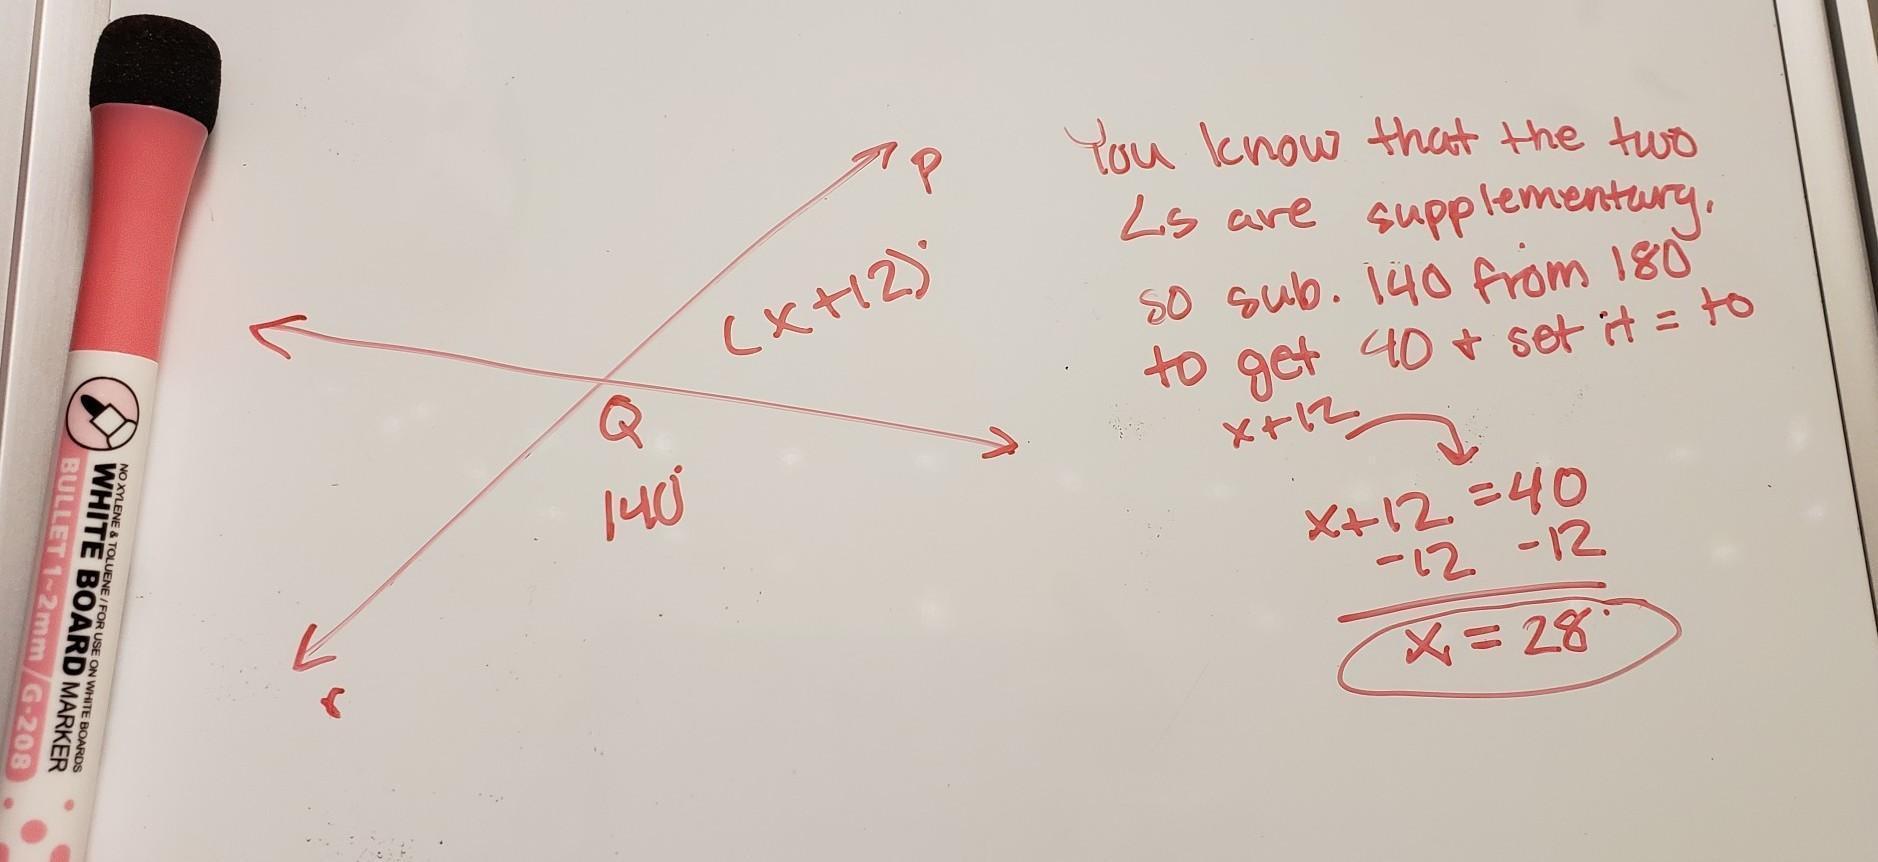 P
(x+12)°
Q
140°
r
You know that the two
∠s are supplementary.
so sub. 140 from 180
to get 40 + set it = to
x+12
x+12 = 40
-12 -12
x = 28°
NO XYLENE & TOLUENE / FOR USE ON WHITE BOARDS
WHITE BOARD MARKER
BULLET 1~2mm / G-208